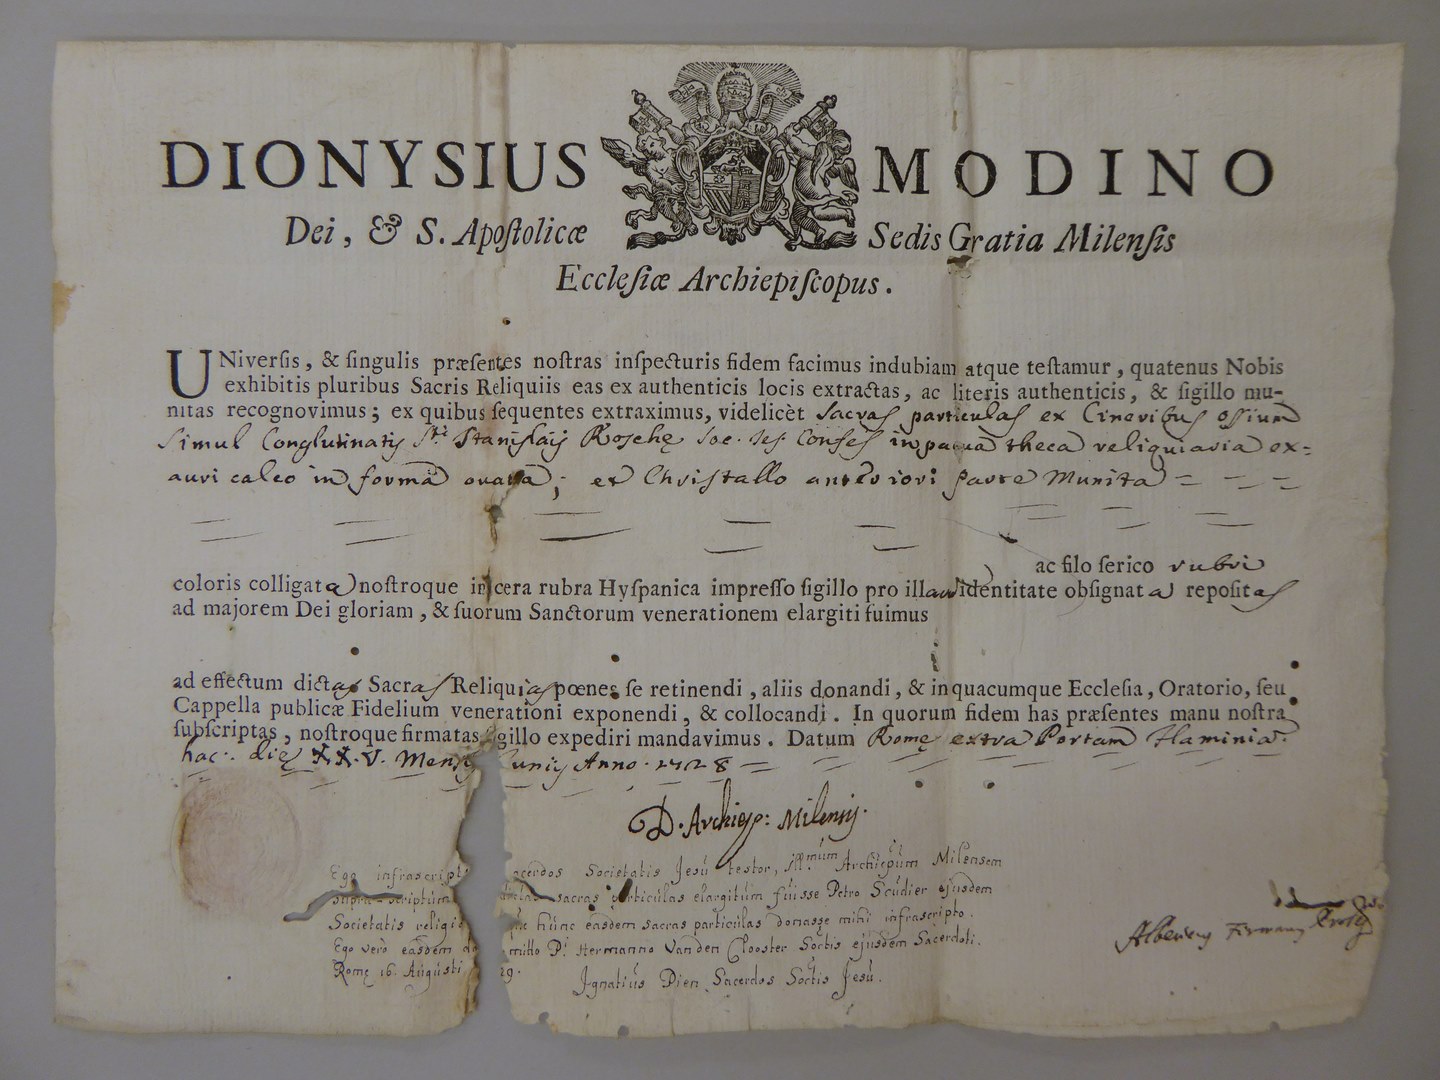 DIONYSIUS MODINO
Dei, & S. Apoſtolicæ Sedis Gratia Milenſis
Eccleſiæ Archiepiſcopus.
UNiverſis, & ſingulis præſentes noſtras inſpecturis fidem facimus indubiam atque teſtamur, quatenus Nobis
exhibitis pluribus Sacris Reliquiis eas ex authenticis locis extractas, ac literis authenticis, & ſigillo mu-
nitas recognovimus; ex quibus ſequentes extraximus, videlicèt Sacras particulas ex Cineribus oſsium
Simul Conglutinatis Sti Stanislaij Koschę Soc. Jes. Conſes. in parua theca reliquiaria ex=
auri calco in formā ovata; et Christallo anteriori parte Munita
ac filo ſerico rubri
coloris colligata noſtroque in cera rubra Hyſpanica impreſſo ſigillo pro illarū identitate obſignata repoſitas
ad majorem Dei gloriam, & ſuorum Sanctorum venerationem elargiti fuimus
ad effectum dictas Sacras Reliquias pœnes ſe retinendi, aliis donandi, & in quacumque Eccleſia, Oratorio, ſeu
Cappella publicæ Fidelium venerationi exponendi, & collocandi. In quorum fidem has præſentes manu noſtra
ſubſcriptas, noſtroque firmatas gillo expediri mandavimus. Datum Romę extra Portam Flaminia
hac. die XX.V. Mens Junij Anno. 1728
D. Archiep: Milensis.
Ego infrascript cerdos Societatis Jesu testor, Ill.mum Archiepum Milensem
supra-scriptum dictas sacras particulas elargitum fuisse Petro Scudier ejusdem
Societatis religio que hunc easdem sacras particulas donasse mihi infrascripto.
Ego vero easdem do mitto P. Hermanno Vanden Clooster Soctis ejusdem Sacerdoti.
Romę 16. Augusti 29.
Ignatius Dien Sacerdos Soctis Jesu.